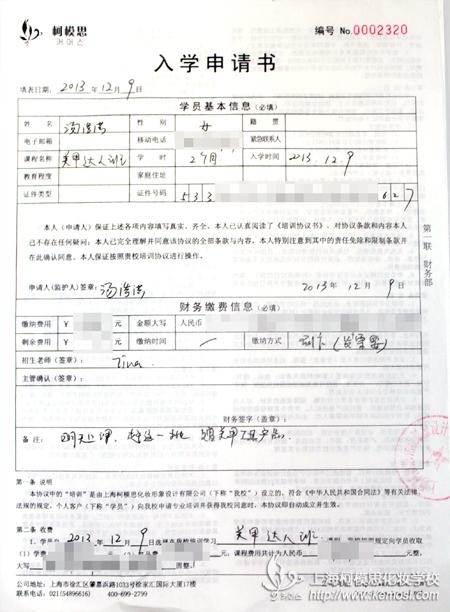 柯模思
커머스
编号 No.0002320
入学申请书
填表日期: 2013 年 12 月 9 日
学员基本信息(必填)
姓名 性别 女 籍贯
电子邮箱 移动电话 紧急联系人
课程名称 美甲达人班 学时 2个月 入学时间 2013.12.9
教育程度 家庭住址
证件类型 证件号码 533 627
本人(申请人)保证上述各项内容填写真实、齐全。本人已认真阅读了《培训协议书》,对协议条款和内容本
人已不存在任何疑问;本人已完全理解并同意该协议的全部条款与内容。本人特别注意到其中的责任免除和限制条款并
在此确认同意。本人保证按照贵校培训协议进行操作。
申请人(监护人)签章: 2013 年 12 月 9 日
第一联 财务部
财务缴费信息(必填)
缴纳费用 ¥ 元 金额大写 人民币
剩余费用 ¥ 元 缴纳时间 缴纳方式 刷卡
招生老师(签章): Tina
主管确认(签章):
财务签字(盖章):
备注: 明天上课,
第一条 说明
本协议中的“培训”是由上海柯模思化妆形象设计有限公司(下称“我校”)设立的、符合《中华人民共和国合同法》等有关法
律法规的规定,个人客户(下称“学员”)向我校申请专业培训并获得我校同意时,本协议即自动成立并生效。
第二条 收费
1. 学员在 2013 年 12 月 9 日 美甲达人班
(1)学费 元,课程费用共计为人民币 元整,
大写
公司地址:上海市徐汇区肇嘉浜路1033号徐家汇国际大厦17楼
联系电话:(021)54896616) 400-699-2799
上海柯模思化妆学校
www.kemosi.com